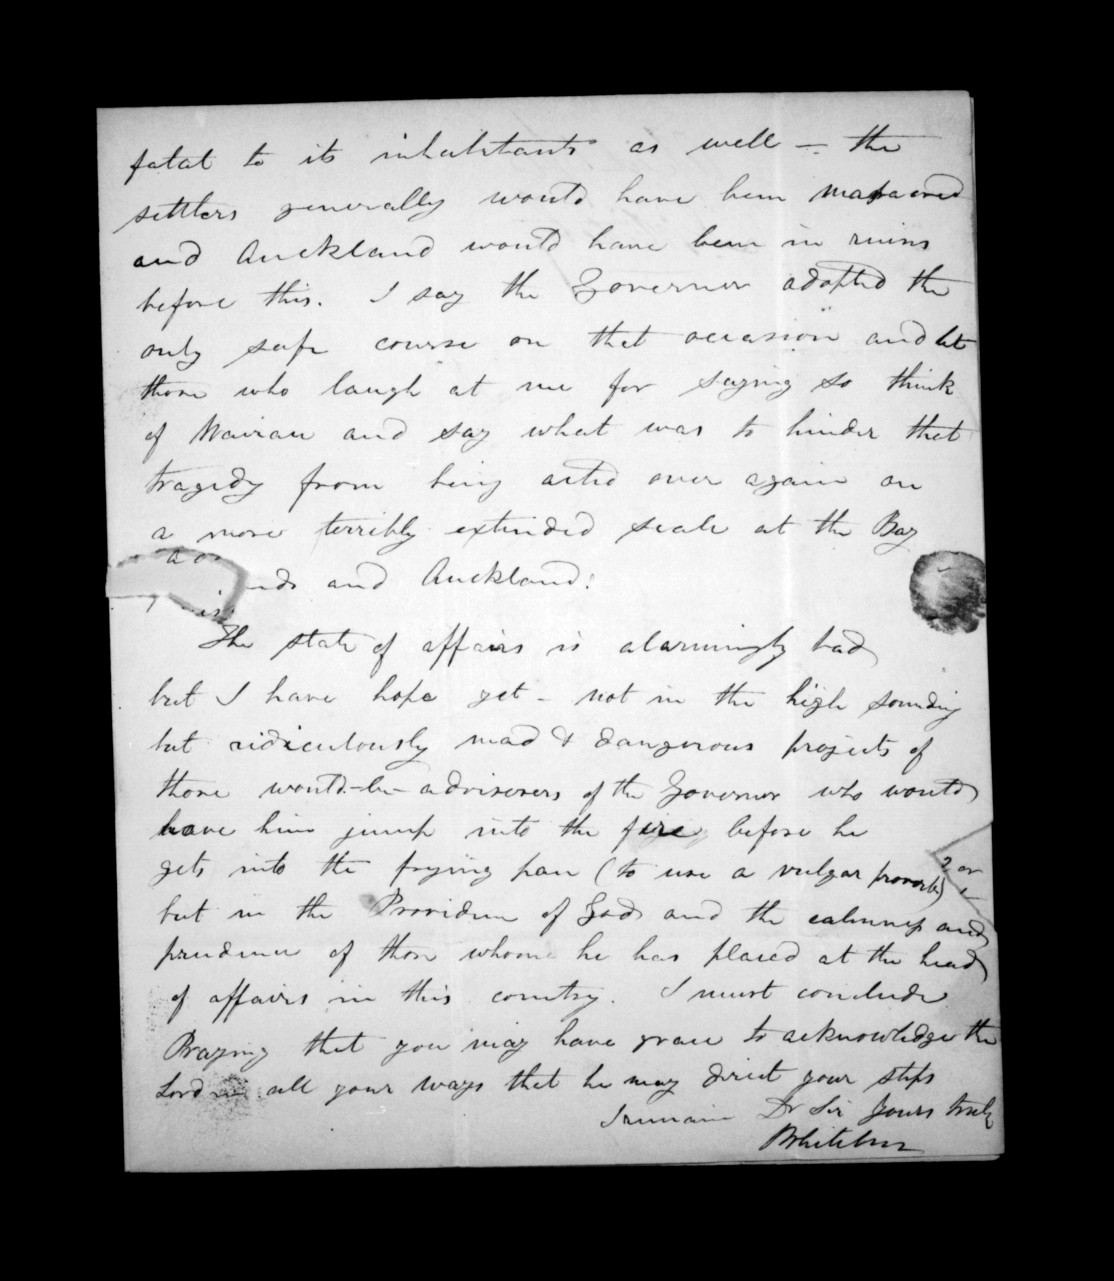 fatal to its inhabitants as well — the
settlers generally would have been massacred
and Auckland would have been in ruins
before this. I say the Governor adopted the
only safe course on that occasion and let
those who laugh at me for saying so think
of Wairau and say what was to hinder that
tragedy from being acted over again on
a more terribly extended scale at the Bay
nds and Auckland!
The state of affairs is alarmingly bad
but I have hope yet – not in the high sounding
but ridiculously mad & dangerous projects of
those would-be-advisers of the Governor who would
have him jump into the fire before he
gets into the frying pan (to use a vulgar proverb)
but in the Providence of God and the calmness and
prudence of those whom he has placed at the head
of affairs in this country. I must conclude
Praying that you may have grace to acknowledge the
Lord in all your ways that he may direct your steps
I remain Dr Sir Yours truly